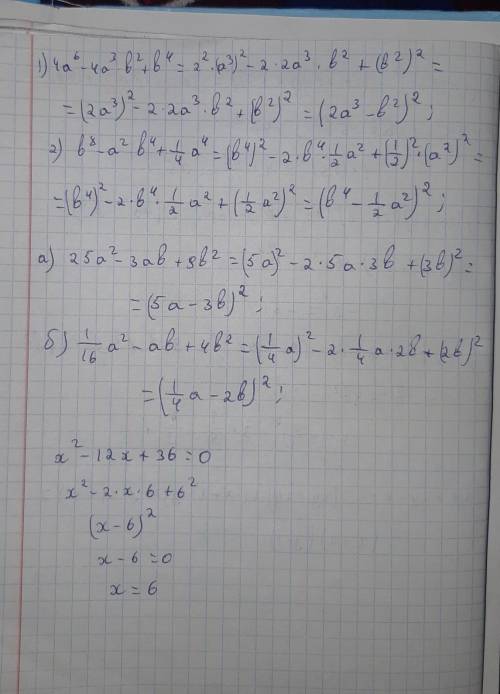 1) 4a⁶-4a³b²+b⁴=2²·(a³)²-2·2a³·b²+(b²)²=
=(2a³)²-2·2a³·b²+(b²)²=(2a³-b²)²;
2) b⁸-a²b⁴+1/4a⁴=(b⁴)²-2·b⁴·1/2a²+(1/2)²·(a²)²=
=(b⁴)²-2·b⁴·1/2a²+(1/2a²)²=(b⁴-1/2a²)²;
а) 25a²-3ab+9b²=(5a)²-2·5a·3b+(3b)²=
=(5a-3b)²;
б) 1/16a²-ab+4b²=(1/4a)²-2·1/4a·2b+(2b)²
=(1/4a-2b)²;
x²-12x+36=0
x²-2·x·6+6²
(x-6)²
x-6=0
x=6